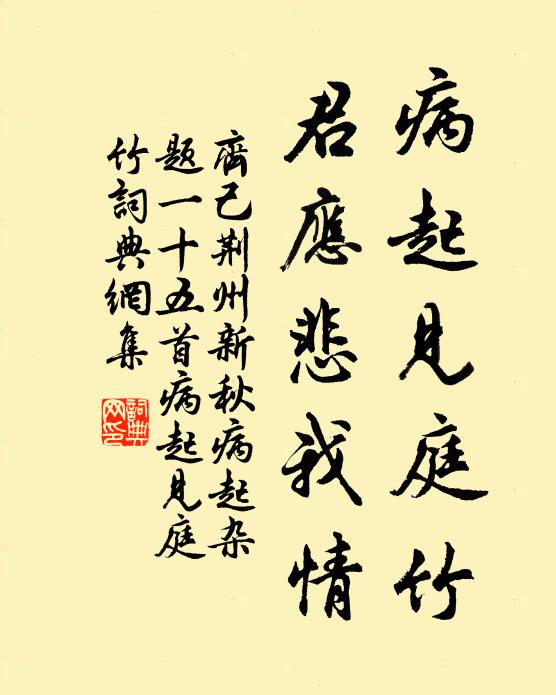 病起見庭竹
君應悲我情
齊己荆州新秋病起杂
题一十五首病起見庭
竹詞典網集
詞典
网印